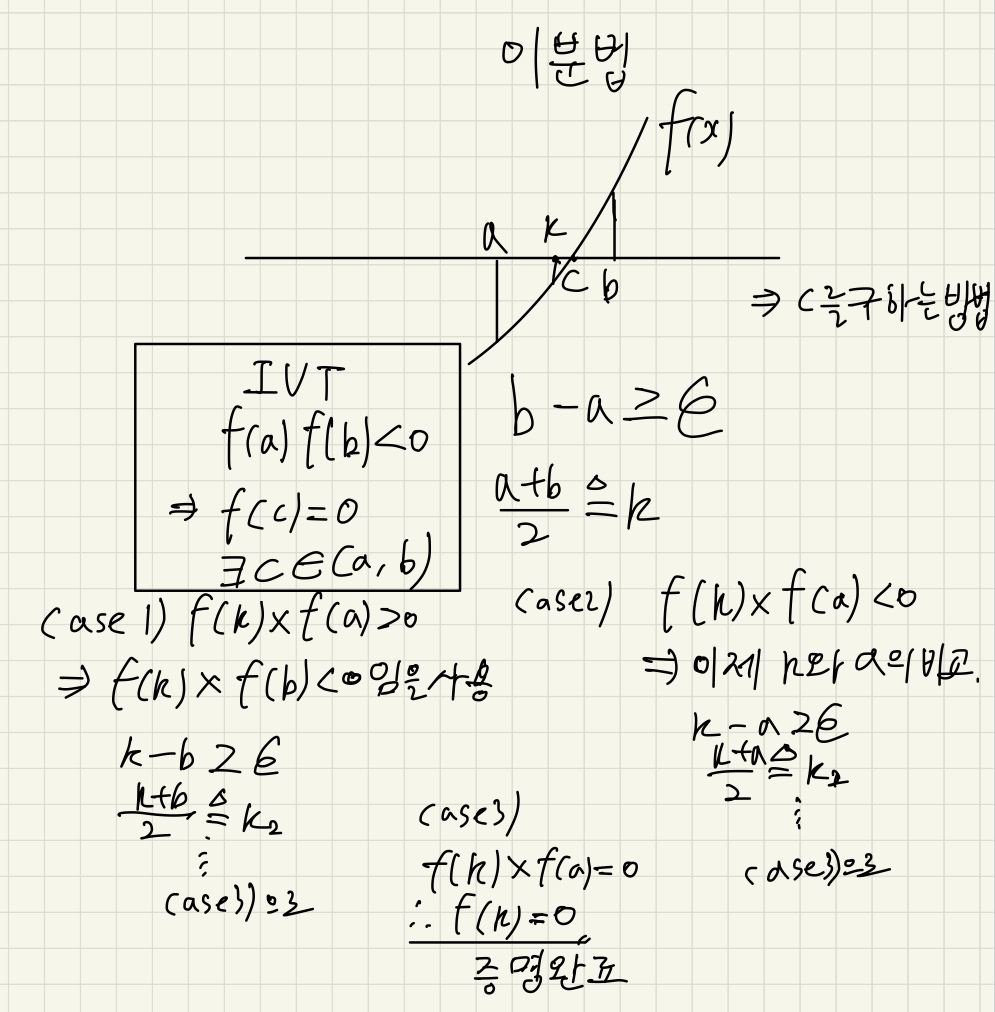 이분법
f(x)
a k
c b
⇒ c를 구하는 방법
IVT
f(a) f(b)<0
⇒ f(c)=0
∃c∈(a, b)
b-a≥ϵ
(a+b)/2 ≜ k
case 1) f(k)×f(a)>0
⇒ f(k)×f(b)<0임을 사용
k-b≥ϵ
(k+b)/2 ≜ k₂
⋮
case3)으로
case2) f(k)×f(a)<0
⇒ 이제 k와 a의 비교.
k-a≥ϵ
(k+a)/2 ≜ k₂
⋮
case3)으로
case3)
f(k)×f(a)=0
∴ f(k)=0
증명완료